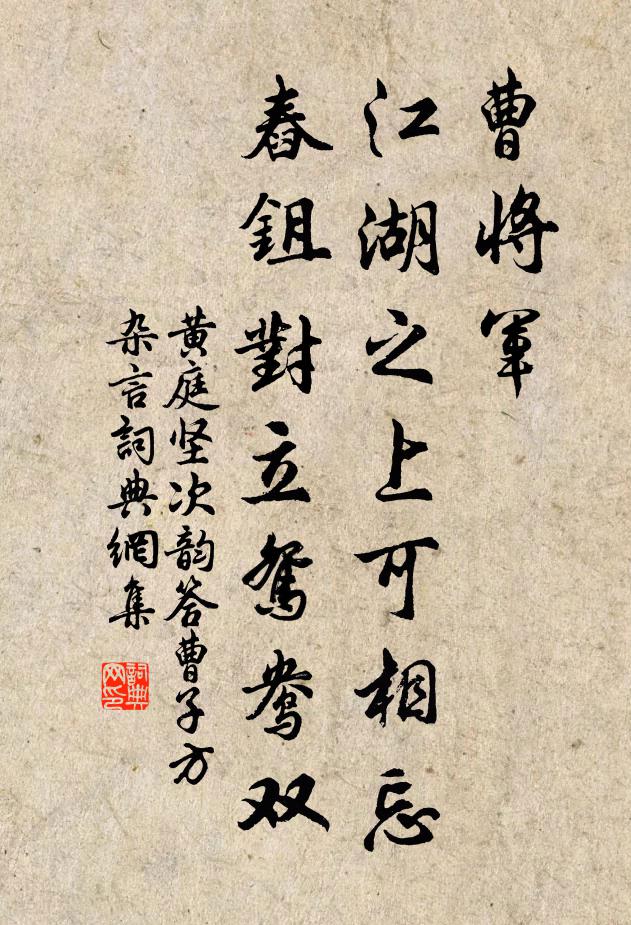 曹將軍
江湖之上可相忘
舂鉏對立鴛鴦双
黄庭坚次韵答曹子方
杂言詞典網集
詞典
网印